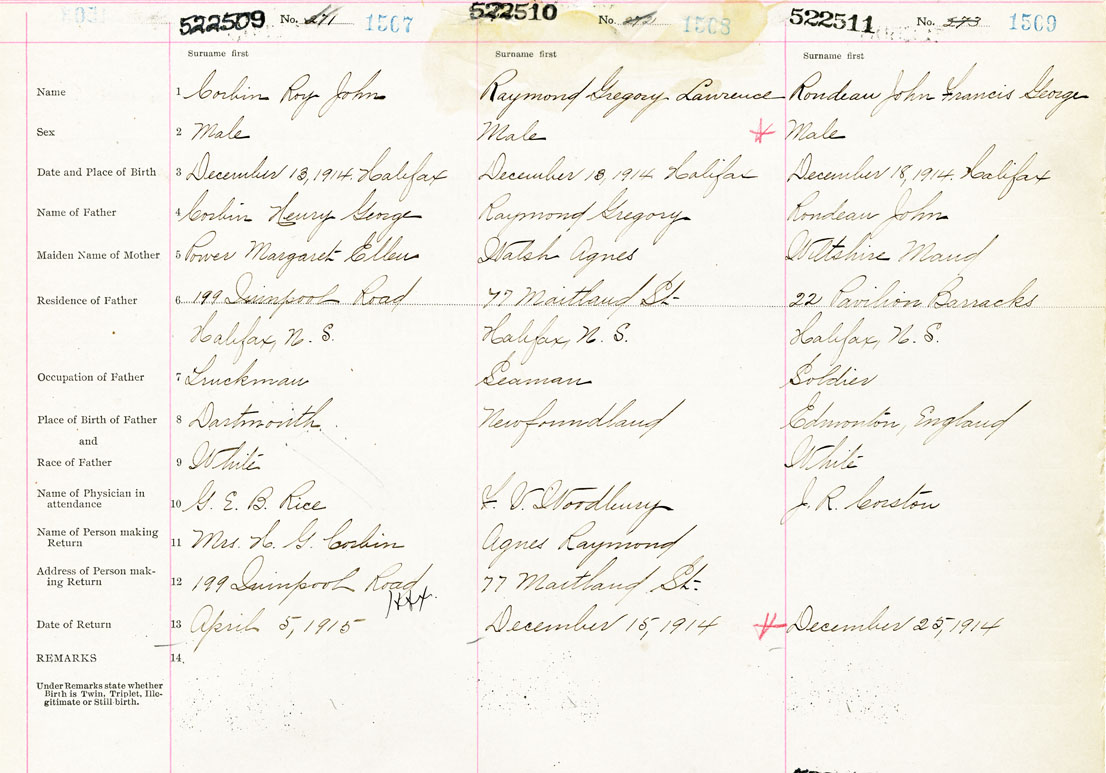 522509 No. 271 1507 522510 No. 272 1508 522511 No. 273 1509
Surname first Surname first Surname first
Name 1 Corbin Roy John Raymond Gregory Lawrence Rondeau John Francis George
Sex 2 Male Male Male
Date and Place of Birth 3 December 13, 1914. Halifax December 13, 1914 Halifax December 18, 1914. Halifax
Name of Father 4 Corbin Henry George Raymond Gregory Rondeau John
Maiden Name of Mother 5 Power Margaret Ellen Walsh Agnes Wiltshire Maud
Residence of Father 6 199 Quinpool Road 77 Maitland St. 22 Pavilion Barracks
Halifax, N. S. Halifax, N. S. Halifax, N. S.
Occupation of Father 7 Truckman Seaman Soldier
Place of Birth of Father 8 Dartmouth Newfoundland Edmonton, England
and
Race of Father 9 White White
Name of Physician in
attendance 10 G. E. B. Rice F. V. Woodbury J. R. Corston
Name of Person making
Return 11 Mrs. H. G. Corbin Agnes Raymond
Address of Person mak-
ing Return 12 199 Quinpool Road 77 Maitland St.
Hfx.
Date of Return 13 April 5, 1915 December 15, 1914 December 25, 1914
REMARKS 14
Under Remarks state whether
Birth is Twin, Triplet, Ille-
gitimate or Still-birth.